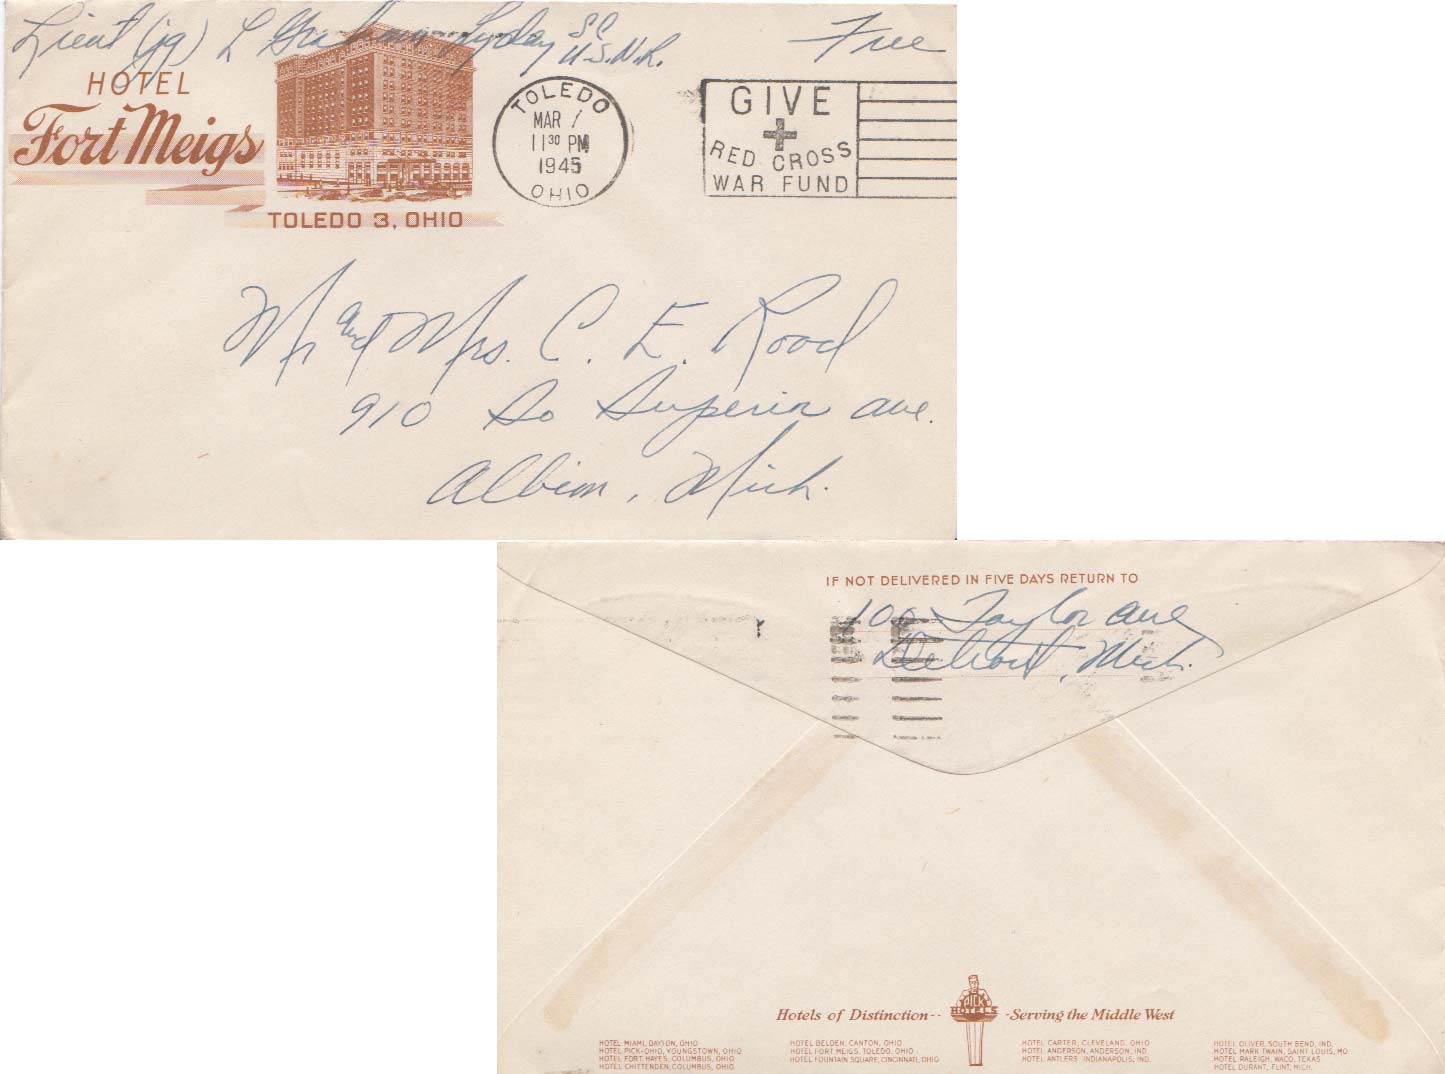 Lieut (jg) L Graham Lyday SC
U.S.N.R.
Free
HOTEL
Fort Meigs
TOLEDO 3, OHIO
TOLEDO
MAR 1
11 30 PM
1945
OHIO
GIVE
RED CROSS
WAR FUND
Mr and Mrs. C. E. Rood
910 So Superior ave.
Albion, Mich.
IF NOT DELIVERED IN FIVE DAYS RETURN TO
100 Taylor ave
Detroit, Mich.
PICK
HOTELS
Hotels of Distinction-- -Serving the Middle West
HOTEL MIAMI, DAYTON, OHIO
HOTEL PICK-OHIO, YOUNGSTOWN, OHIO
HOTEL FORT HAYES, COLUMBUS, OHIO
HOTEL CHITTENDEN, COLUMBUS, OHIO
HOTEL BELDEN, CANTON, OHIO
HOTEL FORT MEIGS, TOLEDO, OHIO
HOTEL FOUNTAIN SQUARE, CINCINNATI, OHIO
HOTEL CARTER, CLEVELAND, OHIO
HOTEL ANDERSON, ANDERSON, IND.
HOTEL ANTLERS INDIANAPOLIS, IND.
HOTEL OLIVER, SOUTH BEND, IND.
HOTEL MARK TWAIN, SAINT LOUIS, MO
HOTEL RALEIGH, WACO, TEXAS
HOTEL DURANT, FLINT, MICH.